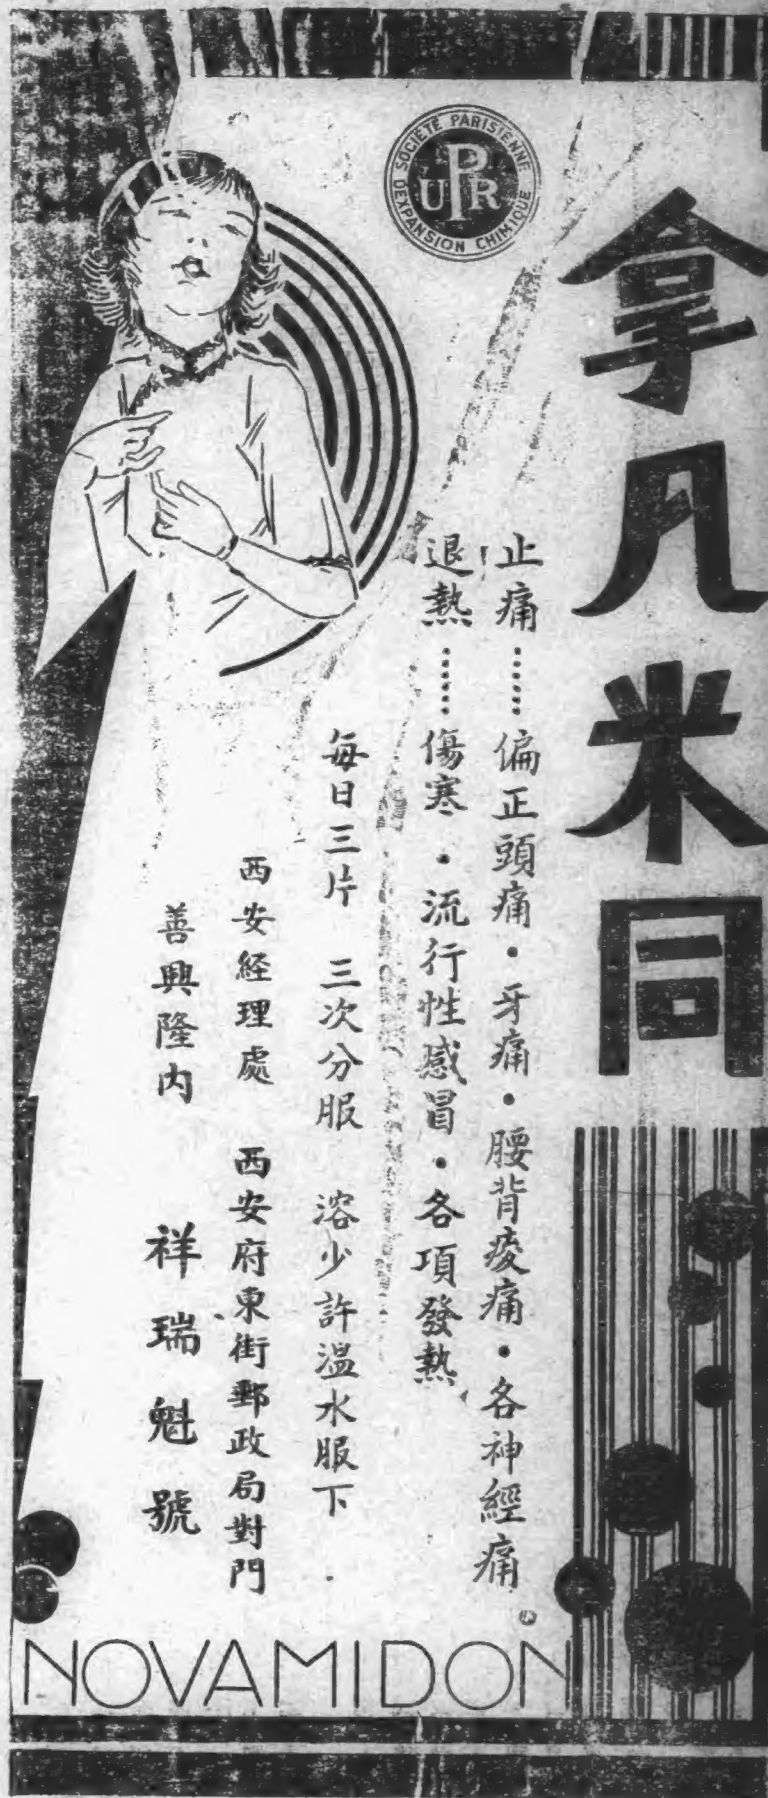 拿凡米同
SOCIÉTÉ PARISIENNE
D'EXPANSION CHIMIQUE
UPR
止痛……偏正頭痛・牙痛・腰背痠痛・各神經痛。
退熱……傷寒・流行性感冒・各項發熱
每日三片 三次分服 溶少許溫水服下.
西安経理處 西安府東街郵政局對門
善興隆內 祥瑞魁號
NOVAMIDON